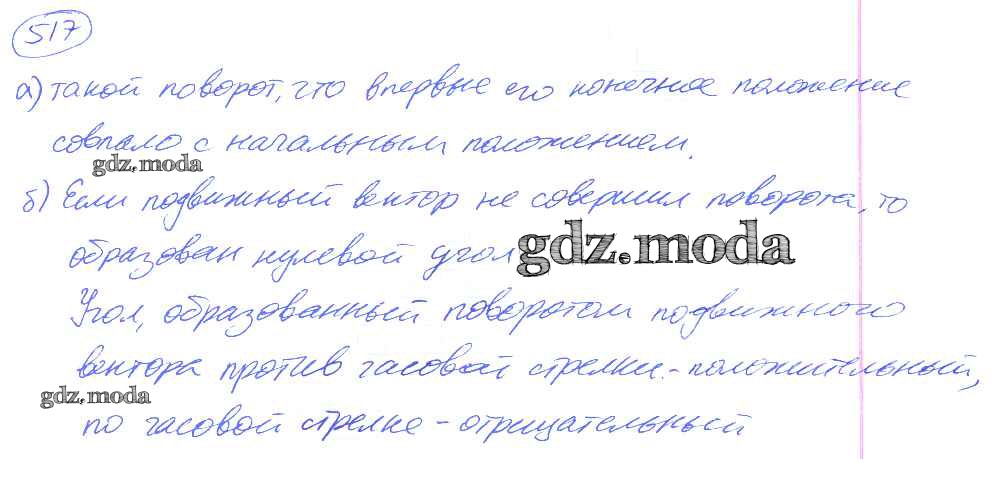 517
а) такой поворот, что впервые его конечное положение
совпало с начальным положением.
gdz.moda
б) Если подвижный вектор не совершил поворота, то
образован нулевой угол gdz.moda
Угол, образованный поворотом подвижного
вектора против часовой стрелки - положительный,
gdz.moda
по часовой стрелке - отрицательный